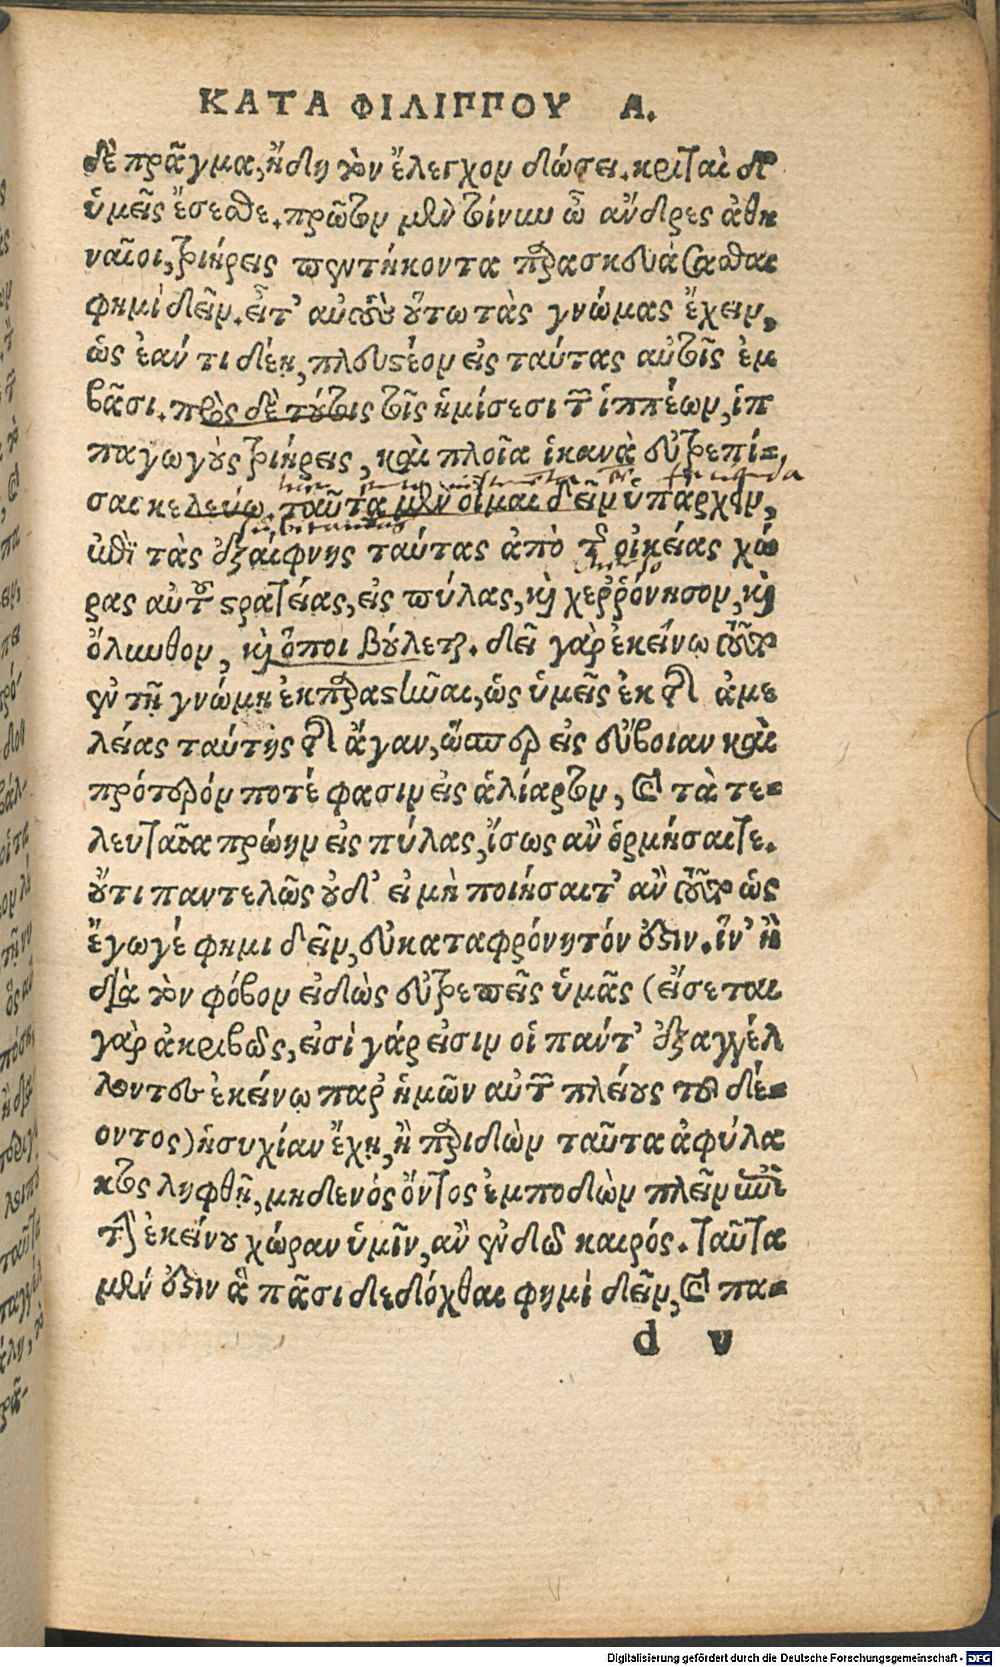 ΚΑΤΑ ΦΙΛΙΠΠΟΥ Α.
δὲ πρᾶγμα, ἤδη τὸν ἔλεγχον δώσει. κριταὶ δὲ
ὑμεῖς ἔσεσθε. πρῶτον μὲν τοίνυν ὦ ἄνδρες ἀθη
ναῖοι, τριήρεις πεντήκοντα παρασκευάσασθαι
φημὶ δεῖν. εἶτ' αὐτοὺς οὕτω τὰς γνώμας ἔχειν,
ὡς ἐάν τι δέῃ, πλευστέον εἰς ταύτας αὐτοῖς ἐμ
βᾶσι. πρὸς δὲ τούτοις τοῖς ἡμίσεσι τῶν ἱππέων, ἱπ
παγωγοὺς τριήρεις, καὶ πλοῖα ἱκανὰ εὐτρεπί-
σαι κελεύω. ταῦτα μὲν οἶμαι δεῖν ὑπάρχειν,
ἐπὶ τὰς ἐξαίφνης ταύτας ἀπὸ τῆς οἰκείας χώ
ρας αὐτοῦ στρατείας, εἰς πύλας, καὶ χερρόνησον, καὶ
ὄλυνθον, καὶ ὅποι βούλεται. δεῖ γὰρ ἐκείνῳ τοῦτο
ἐν τῇ γνώμῃ ἐκπαραστῆσαι, ὡς ὑμεῖς ἐκ τῆς ἀμε
λείας ταύτης τῆς ἄγαν, ὥσπερ εἰς εὔβοιαν καὶ
πρότερόν ποτέ φασιν εἰς ἁλίαρτον, καὶ τὰ τε-
λευταῖα πρώην εἰς πύλας, ἴσως ἂν ὁρμήσαιτε.
οὔτι παντελῶς οὐδ' εἰ μὴ ποιήσαιτ' ἂν τοῦτο ὡς
ἔγωγέ φημι δεῖν, εὐκαταφρόνητόν ἐστιν. ἵν' ἢ
διὰ τὸν φόβον εἰδὼς εὐτρεπεῖς ὑμᾶς (εἴσεται
γὰρ ἀκριβῶς, εἰσὶ γάρ εἰσιν οἱ πάντ' ἐξαγγέλ
λοντες ἐκείνῳ παρ' ἡμῶν αὐτῶν πλείους τοῦ δέ-
οντος) ἡσυχίαν ἔχῃ, ἢ παριδὼν ταῦτα ἀφύλα
κτος ληφθῇ, μηδενός ὄντος ἐμποδὼν πλεῖν ἐπὶ
τὴν ἐκείνου χώραν ὑμῖν, ἂν ἐνδῷ καιρός. ταῦτα
μὲν ἐστιν ἃ πᾶσι δεδόχθαι φημὶ δεῖν, καὶ πα-
d v
Digitalisierung gefördert durch die Deutsche Forschungsgemeinschaft - DFG